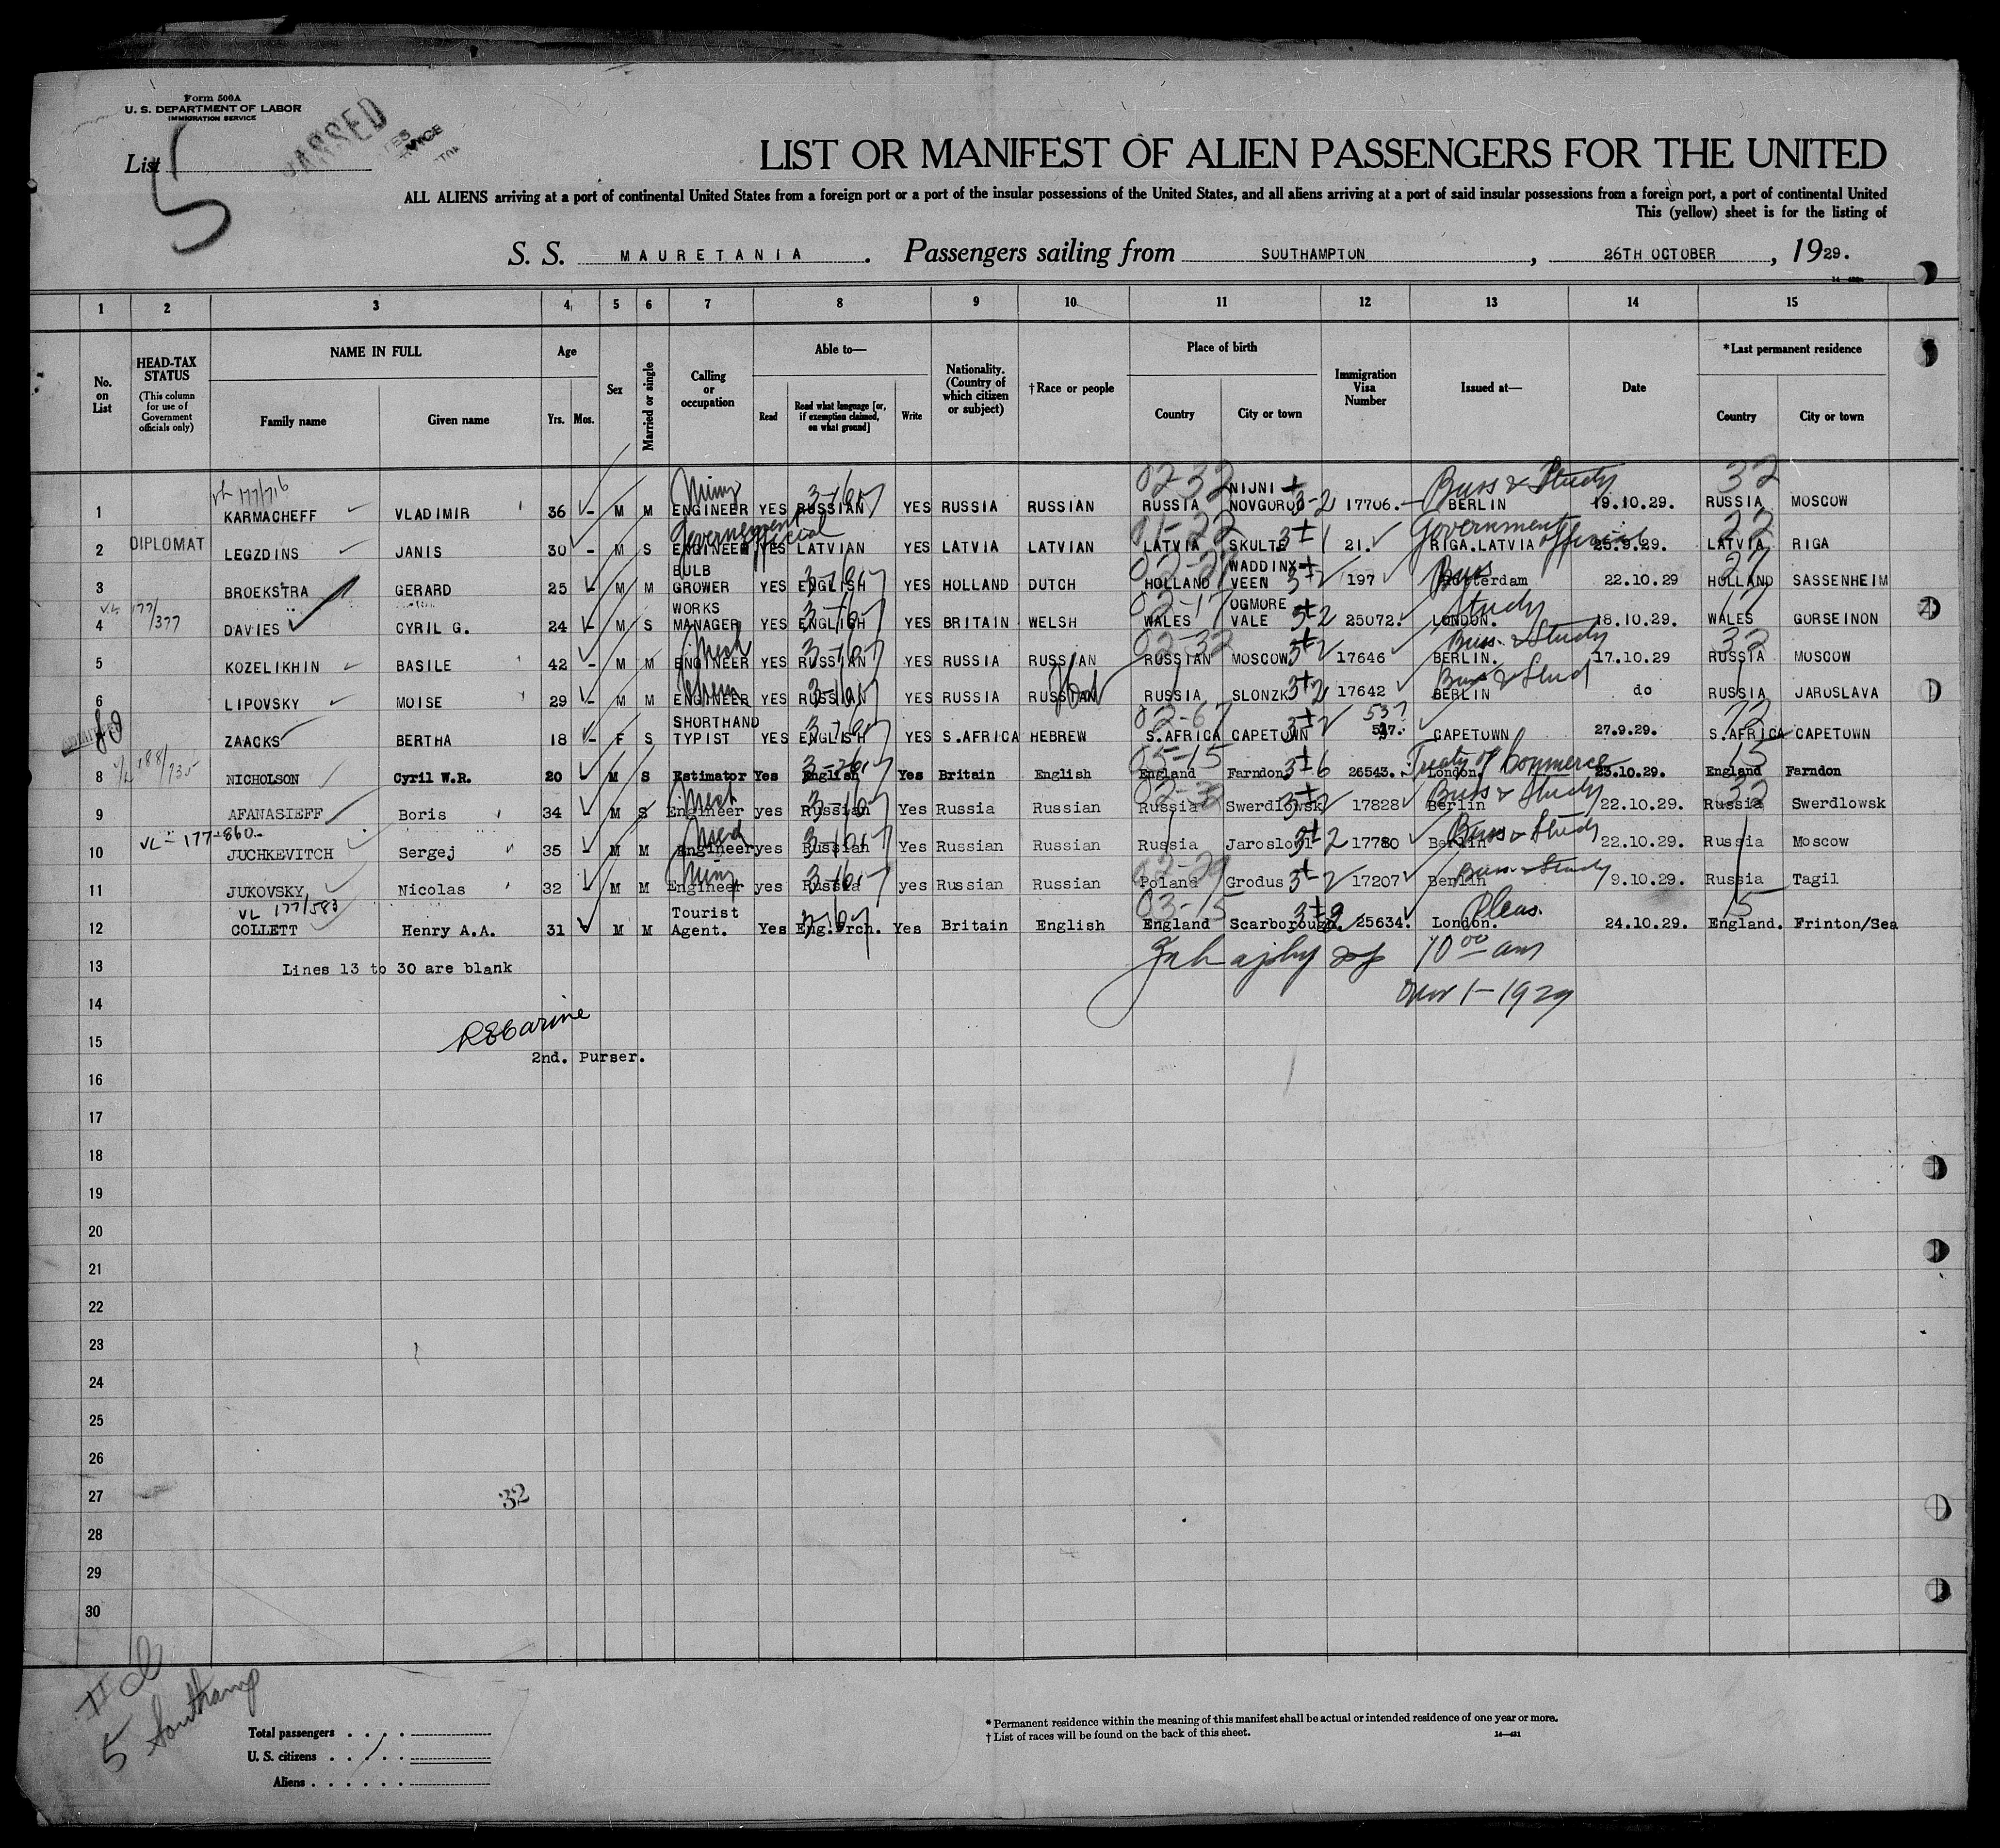 Form 500A
U. S. DEPARTMENT OF LABOR
IMMIGRATION SERVICE
PASSED
List 5
LIST OR MANIFEST OF ALIEN PASSENGERS FOR THE UNITED
ALL ALIENS arriving at a port of continental United States from a foreign port or a port of the insular possessions of the United States, and all aliens arriving at a port of said insular possessions from a foreign port, a port of continental United
This (yellow) sheet is for the listing of
S. S. MAURETANIA. Passengers sailing from SOUTHAMPTON, 26TH OCTOBER, 1929.
1 2 3 4 5 6 7 8 9 10 11 12 13 14 15
No. on List
HEAD-TAX STATUS (This column for use of Government officials only)
NAME IN FULL
Family name Given name
Age
Yrs. Mos.
Sex
Married or single
Calling or occupation
Able to—
Read Read what language [or, if exemption claimed, on what ground] Write
Nationality. (Country of which citizen or subject)
†Race or people
Place of birth
Country City or town
Immigration Visa Number
Issued at—
Date
*Last permanent residence
Country City or town
177/716 02-32 Buss & Study 32
1 KARMACHEFF VLADIMIR 36 - M M ENGINEER YES RUSSIAN YES RUSSIA RUSSIAN RUSSIA NIJNI NOVGOROD 3-2 17706. BERLIN 19.10.29. RUSSIA MOSCOW
Government official 01-22 Government official 22
2 DIPLOMAT LEGZDINS JANIS 30 - M S ENGINEER YES LATVIAN YES LATVIA LATVIAN LATVIA SKULTE 21. RIGA.LATVIA 25.9.29. LATVIA RIGA
3 BROEKSTRA GERARD 25 - M M BULB GROWER YES ENGLISH YES HOLLAND DUTCH HOLLAND WADDINX VEEN 197 Buss Rotterdam 22.10.29 HOLLAND SASSENHEIM
177/377 02-17 Study 17
4 DAVIES CYRIL G. 24 - M S WORKS MANAGER YES ENGLISH YES BRITAIN WELSH WALES OGMORE VALE 25072. LONDON. 18.10.29. WALES GORSEINON
Mech 02-32 Buss. & Study 32
5 KOZELIKHIN BASILE 42 - M M ENGINEER YES RUSSIAN YES RUSSIA RUSSIAN RUSSIAN MOSCOW 17646 BERLIN. 17.10.29 RUSSIA MOSCOW
Buss & Stud
6 LIPOVSKY MOISE 29 - M M ENGINEER YES RUSSIAN YES RUSSIA RUSSIAN RUSSIA SLONZK 17642 BERLIN do RUSSIA JAROSLAVA
02-67 537 72
ZAACKS BERTHA 18 - F S SHORTHAND TYPIST YES ENGLISH YES S.AFRICA HEBREW S.AFRICA CAPETOWN CAPETOWN 27.9.29. S.AFRICA CAPETOWN
188/735 05-15 Treaty of Commerce 15
8 NICHOLSON Cyril W.R. 20 M S Estimator Yes English Yes Britain English England Farndon 26543. London. 23.10.29. England Farndon
Buss & Study 32
9 AFANASIEFF Boris 34 M S Engineer yes Russian Yes Russia Russian Russia Swerdlowsk 17828 Berlin 22.10.29. Russia Swerdlowsk
VL - 177-860 Buss & Study
10 JUCHKEVITCH Sergej 35 - M M Engineer yes Russian Yes Russia Russian Russia 17780 Berlin 22.10.29. Russia Moscow
Buss & Study
11 JUKOVSKY, Nicolas 32 M M Engineer yes Russia yes Russian Russian Poland Grodus 17207 Berlin 9.10.29. Russia Tagil
VL 177/583 03-15 Pleas. 15
12 COLLETT Henry A.A. 31 M M Tourist Agent. Yes Eng.Frch. Yes Britain English England Scarborough. 25634. London. 24.10.29. England. Frinton/Sea
13 Lines 13 to 30 are blank 10 00 am
14 Nov 1-1929
15
2nd. Purser.
16
17
18
19
20
21
22
23
24
25
26
27 32
28
29
30
II d
5 Southamp
Total passengers
U. S. citizens
Aliens
* Permanent residence within the meaning of this manifest shall be actual or intended residence of one year or more.
† List of races will be found on the back of this sheet.
14—431